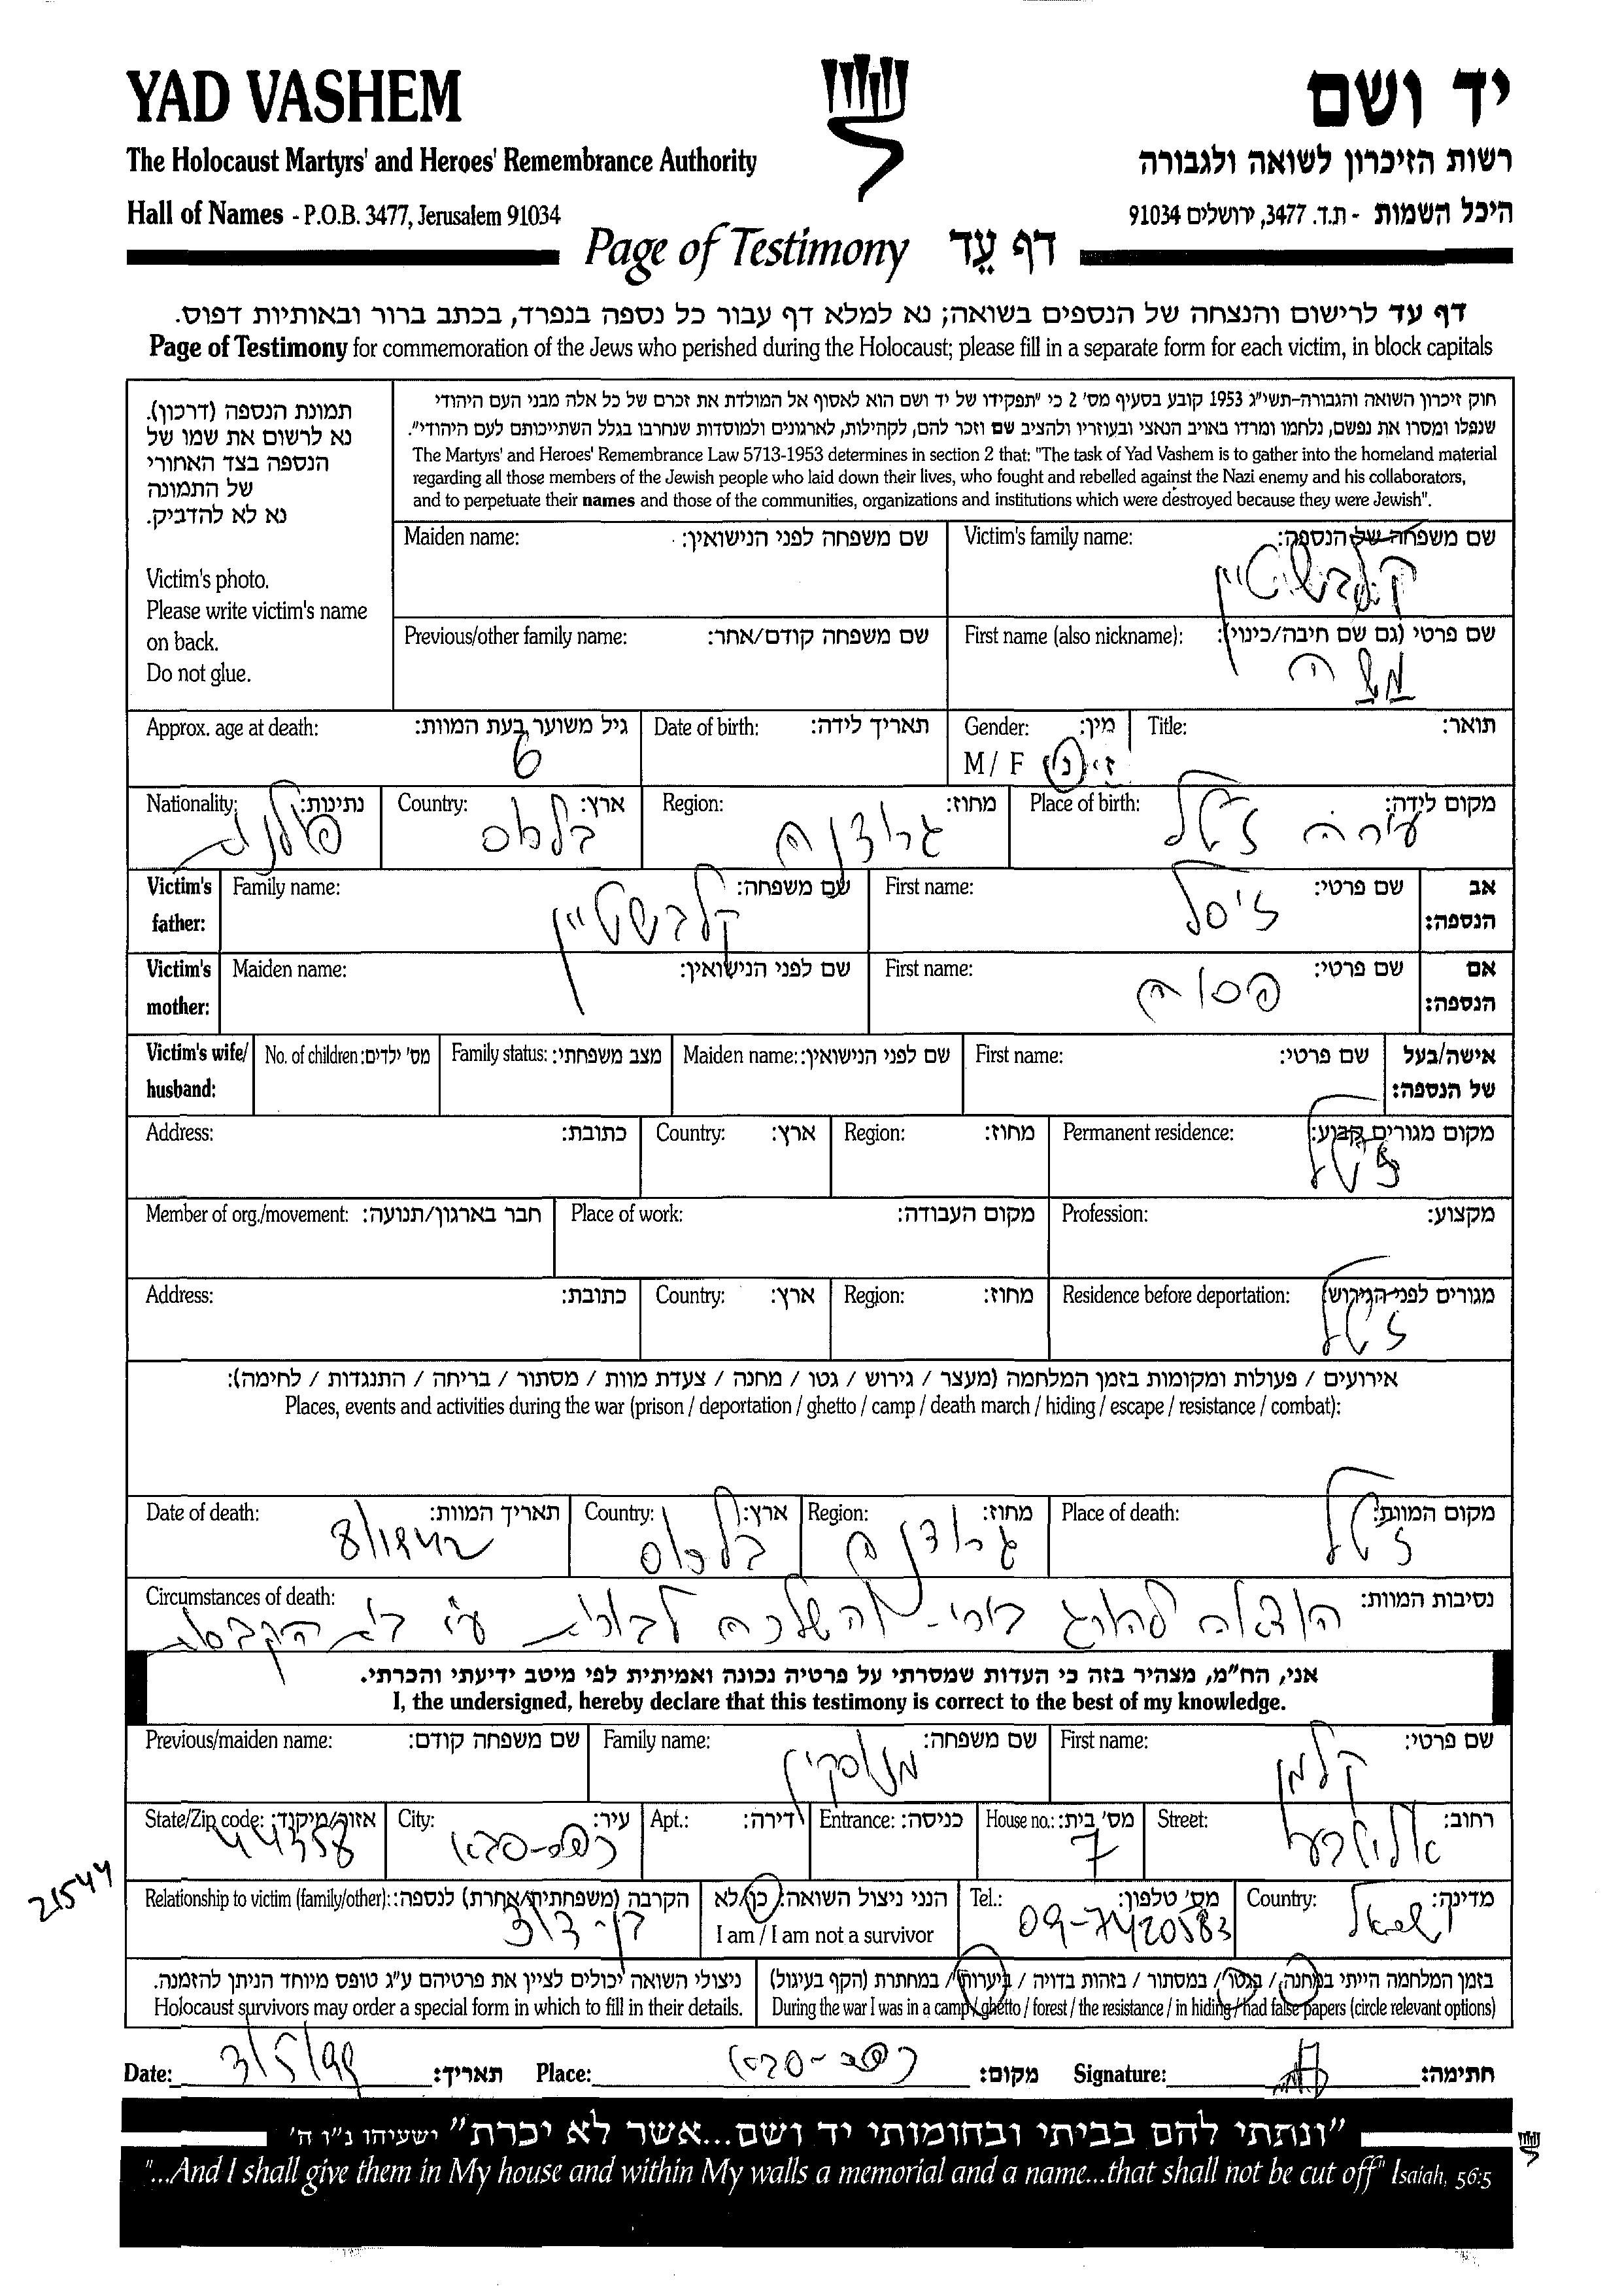 YAD VASHEM
יד ושם
The Holocaust Martyrs' and Heroes' Remembrance Authority
רשות הזיכרון לשואה ולגבורה
Hall of Names - P.O.B. 3477, Jerusalem 91034
היכל השמות - ת.ד. 3477, ירושלים 91034
Page of Testimony דף עֵד
דף עד לרישום והנצחה של הנספים בשואה; נא למלא דף עבור כל נספה בנפרד, בכתב ברור ובאותיות דפוס.
Page of Testimony for commemoration of the Jews who perished during the Holocaust; please fill in a separate form for each victim, in block capitals
תמונת הנספה (דרכון).
נא לרשום את שמו של
הנספה בצד האחורי
של התמונה
נא לא להדביק.
Victim's photo.
Please write victim's name
on back.
Do not glue.
חוק זיכרון השואה והגבורה-תשי"ג 1953 קובע בסעיף מס' 2 כי "תפקידו של יד ושם הוא לאסוף אל המולדת את זכרם של כל אלה מבני העם היהודי
שנפלו ומסרו את נפשם, נלחמו ומרדו באויב הנאצי ובעוזריו ולהציב שם וזכר להם, לקהילות, לארגונים ולמוסדות שנחרבו בגלל השתייכותם לעם היהודי".
The Martyrs' and Heroes' Remembrance Law 5713-1953 determines in section 2 that: "The task of Yad Vashem is to gather into the homeland material
regarding all those members of the Jewish people who laid down their lives, who fought and rebelled against the Nazi enemy and his collaborators,
and to perpetuate their names and those of the communities, organizations and institutions which were destroyed because they were Jewish".
שם משפחה של הנספה: Victim's family name:
שם משפחה לפני הנישואין: Maiden name:
קלבשטיין
שם פרטי (גם שם חיבה/כינוי): First name (also nickname):
שם משפחה קודם/אחר: Previous/other family name:
משה
תואר: Title:
מין: Gender:
תאריך לידה: Date of birth:
גיל משוער בעת המוות: Approx. age at death:
ז / נ M / F
6
מקום לידה: Place of birth:
מחוז: Region:
ארץ: Country:
נתינות: Nationality:
עירה ז'טל
גרודנה
בלרוס
פולנית
אב הנספה: Victim's father:
שם פרטי: First name:
שם משפחה: Family name:
זיסל
קלבשטיין
אם הנספה: Victim's mother:
שם פרטי: First name:
שם לפני הנישואין: Maiden name:
פסיה
אישה/בעל של הנספה: Victim's wife/ husband:
שם פרטי: First name:
שם לפני הנישואין: Maiden name:
מצב משפחתי: Family status:
מס' ילדים: No. of children:
מקום מגורים קבוע: Permanent residence:
מחוז: Region:
ארץ: Country:
כתובת: Address:
ז'טל
מקצוע: Profession:
מקום העבודה: Place of work:
חבר בארגון/תנועה: Member of org./movement:
מגורים לפני הגירוש: Residence before deportation:
מחוז: Region:
ארץ: Country:
כתובת: Address:
ז'טל
אירועים / פעולות ומקומות בזמן המלחמה (מעצר / גירוש / גטו / מחנה / צעדת מוות / מסתור / בריחה / התנגדות / לחימה):
Places, events and activities during the war (prison / deportation / ghetto / camp / death march / hiding / escape / resistance / combat):
מקום המוות: Place of death:
מחוז: Region:
ארץ: Country:
תאריך המוות: Date of death:
ז'טל
גרודנה
בלרוס
8/1942
נסיבות המוות: Circumstances of death:
הוצאה להורג בירי - והשלכה לבורות ע"י
אני, הח"מ, מצהיר בזה כי העדות שמסרתי על פרטיה נכונה ואמיתית לפי מיטב ידיעתי והכרתי.
I, the undersigned, hereby declare that this testimony is correct to the best of my knowledge.
שם פרטי: First name:
שם משפחה: Family name:
שם משפחה קודם: Previous/maiden name:
קלמן
רחוב: Street:
מס' בית: House no.:
כניסה: Entrance:
דירה: Apt.:
עיר: City:
אזור/מיקוד: State/Zip code:
7
כפר-סבא
44358
21544
מדינה: Country:
מס' טלפון: Tel.:
הנני ניצול השואה: כן/לא
I am / I am not a survivor
הקרבה (משפחתית/אחרת) לנספה: Relationship to victim (family/other):
ישראל
09-7420583
בן-דוד
בזמן המלחמה הייתי במחנה / בגטו / במסתור / בזהות בדויה / ביערות / במחתרת (הקף בעיגול)
During the war I was in a camp / ghetto / forest / the resistance / in hiding / had false papers (circle relevant options)
ניצולי השואה יכולים לציין את פרטיהם ע"ג טופס מיוחד הניתן להזמנה.
Holocaust survivors may order a special form in which to fill in their details.
חתימה: Signature:
מקום: Place: כפר-סבא
תאריך: Date: 3/5/99
"ונתתי להם בביתי ובחומותי יד ושם...אשר לא יכרת" ישעיהו נ"ו ה'
"...And I shall give them in My house and within My walls a memorial and a name...that shall not be cut off" Isaiah, 56:5